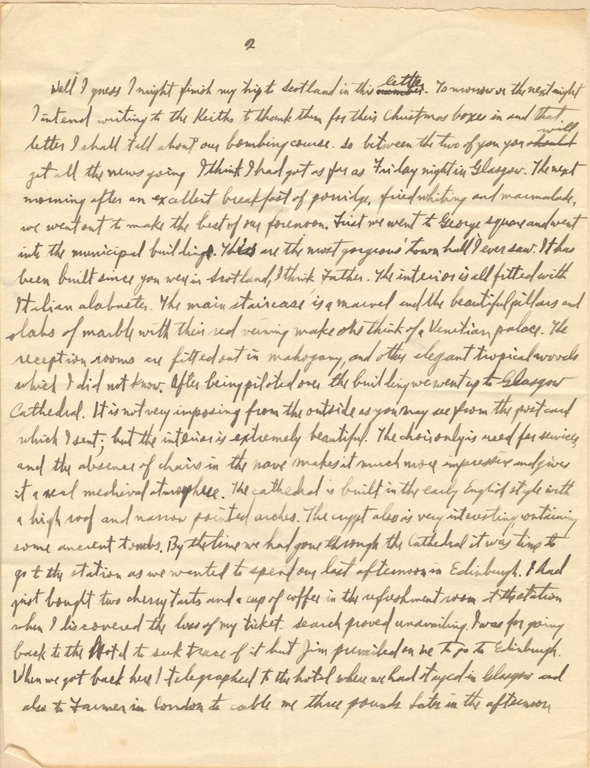 2
Well I guess I might finish my trip to Scotland in this letter. Tomorrow or the next night
I intend writing to the Keiths to thank them for their Christmas boxes in and that
letter I shall tell about our bombing course. so between the two of you you will
get all the news going I think I had got as far as Friday night in Glasgow. The next
morning after an excellent breakfast of porridge, fried whiting and marmalade,
we went out to make the best of our forenoon. First we went to George square and went
into the municipal buildings. This are the most gorgeous town hall I ever saw. It has
been built since you were in Scotland, I think Father. The interior is all fitted with
Italian alabaster. The main staircase is a marvel and the beautiful pillars and
slabs of marble with their red veining make one think of a Venetian palace. The
reception rooms are fitted out in mahogany, and other elegant tropical woods
which I did not know. After being piloted over the building we went up to Glasgow
Cathedral. It is not very imposing from the outside as you may see from the post card
which I sent; but the interior is extremely beautiful. The choir only is used for services
and the absence of chairs in the nave makes it much more impressive and gives
it a real medieval atmosphere. The cathedral is built in the early English style with
a high roof and narrow pointed arches. The crypt also is very interesting containing
some ancient tombs. By the time we had gone through the Cathedral it was time to
go to the station as we wanted to spend our last afternoon in Edinburgh. I had
just bought two cherry tarts and a cup of coffee in the refreshment room at the station
when I discovered the loss of my ticket. search proved unavailing. I was for going
back to the Hotel to seek trace of it but Jim prevailed on me to go to Edinburgh.
When we got back here I telegraphed to the hotel where we had stayed in Glasgow and
also to Farmer in London to cable me three pounds. Later in the afternoon